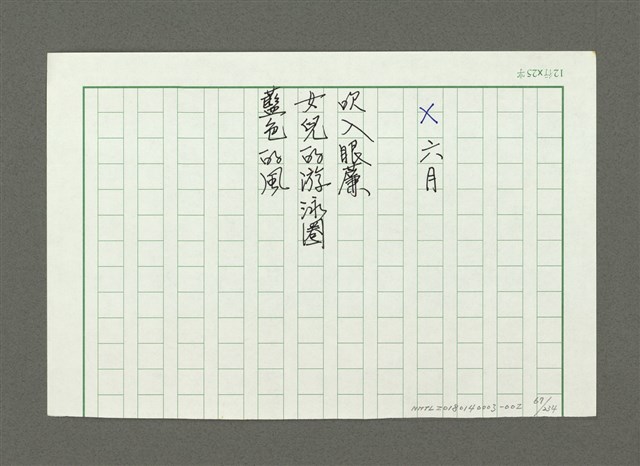 12行×25字
X 六月
吹入眼簾
女兒的游泳圈
藍色的風
NMTL20180140003-002
69/234